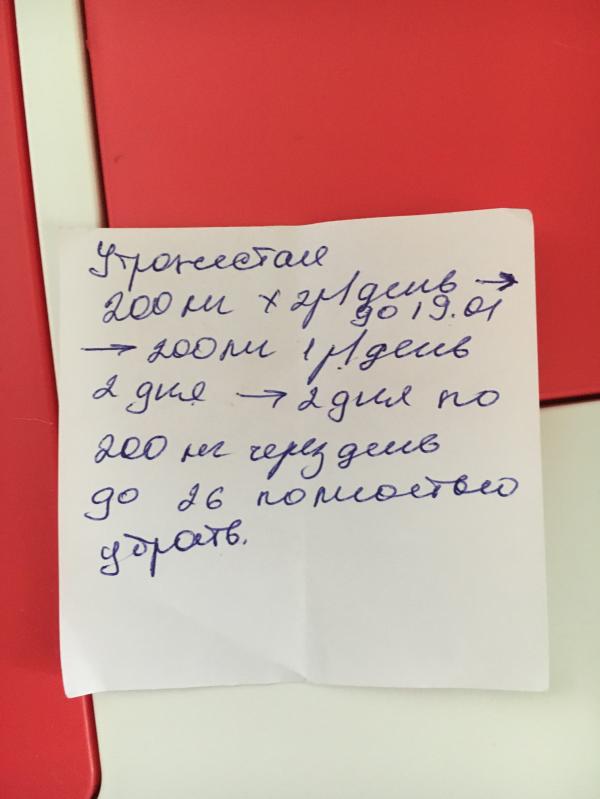 Утрожестан
200 мг × 2р/день →
до 19.01
→ 200 мг 1р/день
2 дня → 2 дня по
200 мг через день
до 26 полностью
убрать.